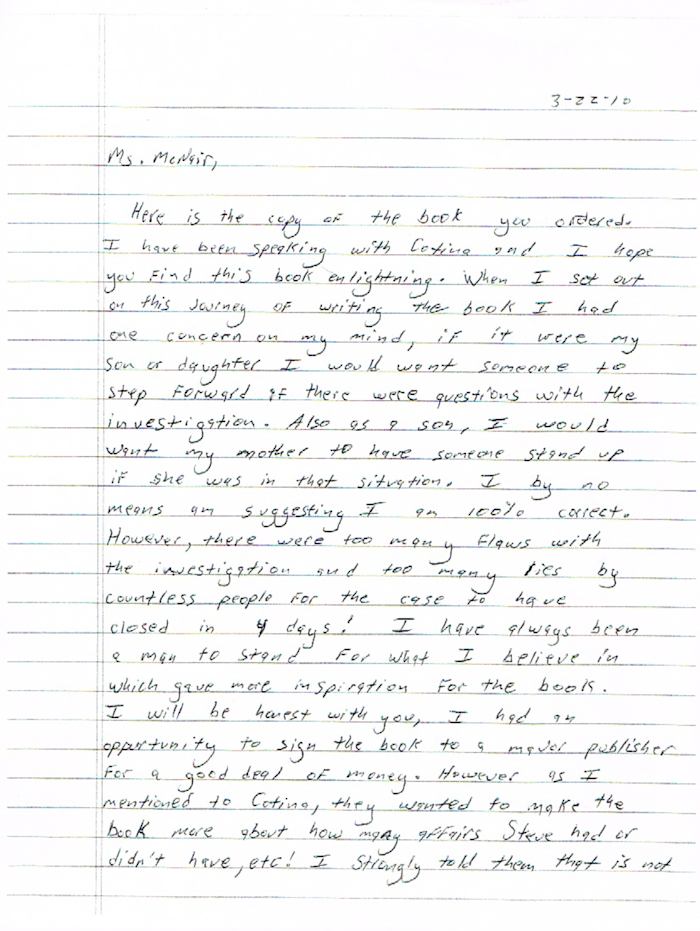 3-22-10
Ms. McNair,
Here is the copy of the book you ordered.
I have been speaking with Catina and I hope
you find this book enlightning. When I set out
on this Journey of writing the book I had
one concern on my mind, if it were my
son or daughter I would want someone to
step forward if there were questions with the
investigation. Also as a son, I would
want my mother to have someone stand up
if she was in that situation. I by no
means am suggesting I am 100% correct.
However, there were too many flaws with
the investigation and too many lies by
countless people for the case to have
closed in 4 days! I have always been
a man to stand for what I believe in
which gave more inspiration for the book.
I will be honest with you, I had an
opportunity to sign the book to a major publisher
for a good deal of money. However as I
mentioned to Catina, they wanted to make the
book more about how many affairs Steve had or
didn't have, etc! I strongly told them that is not